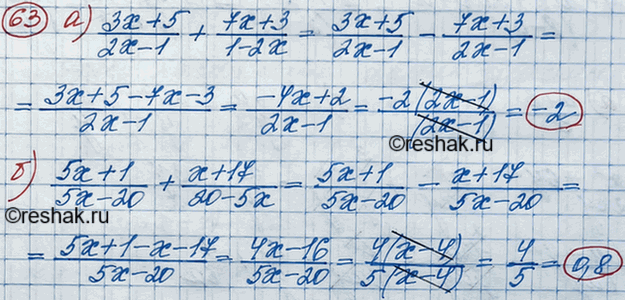 63 а) (3x+5)/(2x-1) + (7x+3)/(1-2x) = (3x+5)/(2x-1) - (7x+3)/(2x-1) =
= (3x+5-7x-3)/(2x-1) = (-4x+2)/(2x-1) = (-2(2x-1))/((2x-1)) = -2
©reshak.ru
б) (5x+1)/(5x-20) + (x+17)/(20-5x) = (5x+1)/(5x-20) - (x+17)/(5x-20) =
©reshak.ru
= (5x+1-x-17)/(5x-20) = (4x-16)/(5x-20) = (4(x-4))/(5(x-4)) = 4/5 = 0,8